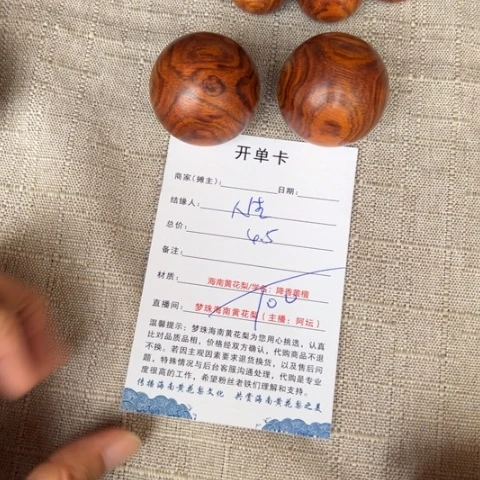 开单卡
商家(摊主): 日期:
结缘人: 人生
总价: 4.5
备注:
材质: 海南黄花梨/学名: 降香黄檀
100
直播间: 梦珠海南黄花梨(主播: 阿坛)
温馨提示: 梦珠海南黄花梨为您用心挑选, 认真
比对品质品相, 价格经双方确认, 代购商品不退
不换。若因主观因素要求退换货, 以及售后问
题, 特殊情况与后台客服沟通处理, 代购是专业
度很高的工作, 希望粉丝老铁们理解和支持。
传播海南黄花梨文化 共赏海南黄花梨之美